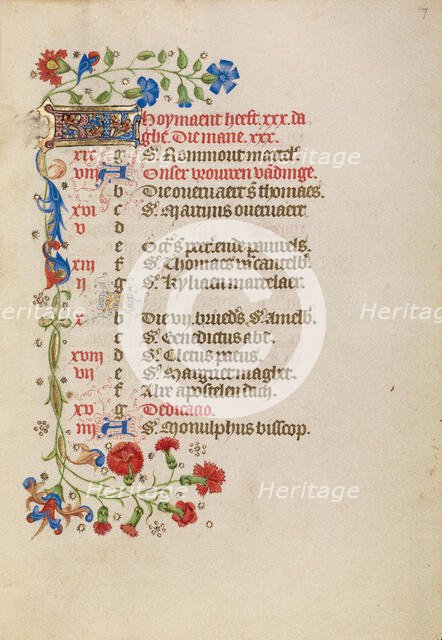 7
KL Hoymaent heeft .xxx. da
ghe. Die mane .xxx.
xix g Sc̄. Rommout martel'.
viii A Onser vrouwen vadinge.
b Die ouervaert s̄ thomaes.
xvi c Sc̄. Martijns ouervaert.
v d
e Oct̄. s̄. peet. ende pauwels.
xiii f Sc̄. Thomaes van cantelb'.
ii g Sc̄. Kyliaen martelaer.
x b Die vij. brued's. S. Amelb'.
c Sc̄. Benedictus abt'.
xviii d Sc̄. Cletus paeus.
vii e Sc̄. Margriet maghet.
f Alre apostelen dach.
xv g Dedicacio.
iiii A Sc̄. Monulphus bisscop.
Heritage Heritage Heritage
Heritage Heritage
Heritage Heritage Heritage